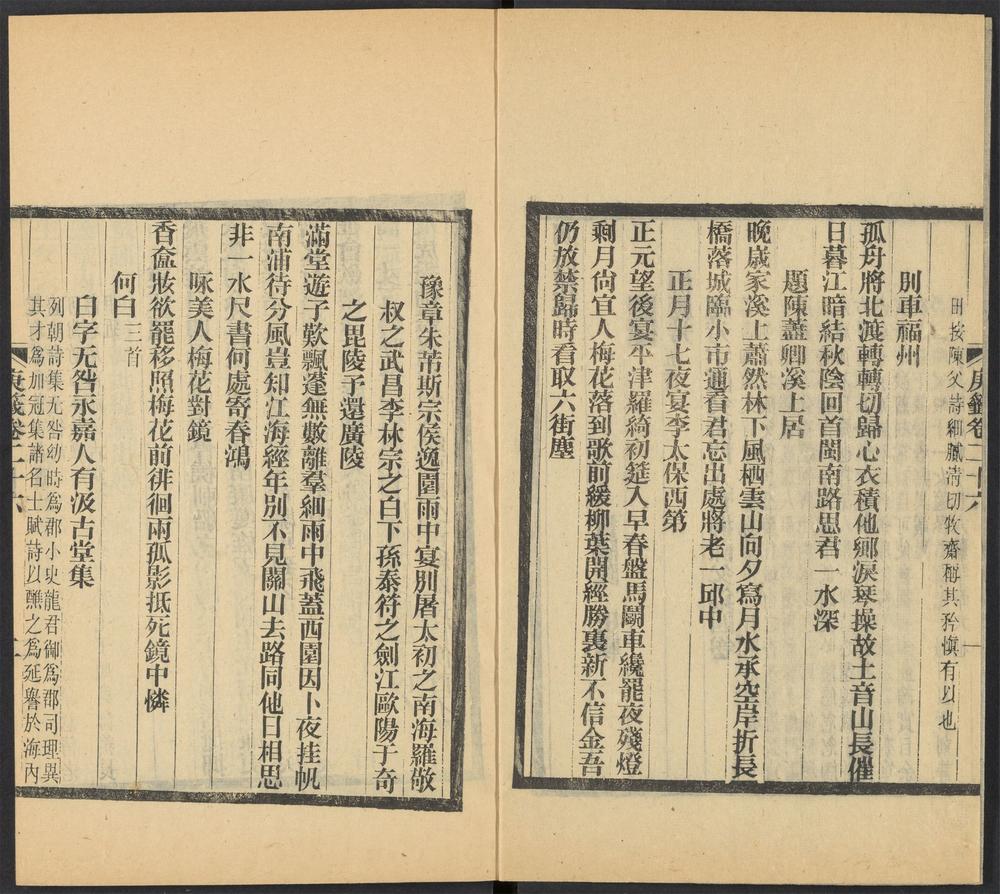 田按陳父詩細膩清切牧齋稱其矜愼有以也
別車福州
孤舟將北渡轉轉切歸心衣積他鄉淚琴操故土音山長催
日暮江暗結秋陰回首閩南路思君一水深
題陳藎卿溪上居
晚歲家溪上蕭然林下風栖雲山向夕寫月水承空岸折長
橋落城臨小市通看君忘出處將老一邱中
正月十七夜宴李太保西第
正元望後宴平津羅綺初筵入早春盤馬鬭車纔罷夜殘燈
剩月尙宜人梅花落到歌前緩柳葉開經勝裏新不信金吾
仍放禁歸時看取六街塵
豫章朱芾斯宗侯逸園雨中宴別屠太初之南海羅敬
叔之武昌李林宗之白下孫泰符之劍江歐陽于奇
之毘陵予還廣陵
滿堂遊子歎飄蓬無數離羣細雨中飛蓋西園因卜夜挂帆
南浦待分風豈知江海經年別不見關山去路同他日相思
非一水尺書何處寄春鴻
咏美人梅花對鏡
香奩妝欲罷移照梅花前徘徊兩孤影抵死鏡中憐
何白三首
白字无咎永嘉人有汲古堂集
列朝詩集无咎幼時爲郡小史龍君御爲郡司理異
其才爲加冠集諸名士賦詩以醮之爲延譽於海內
庚籤卷二十六